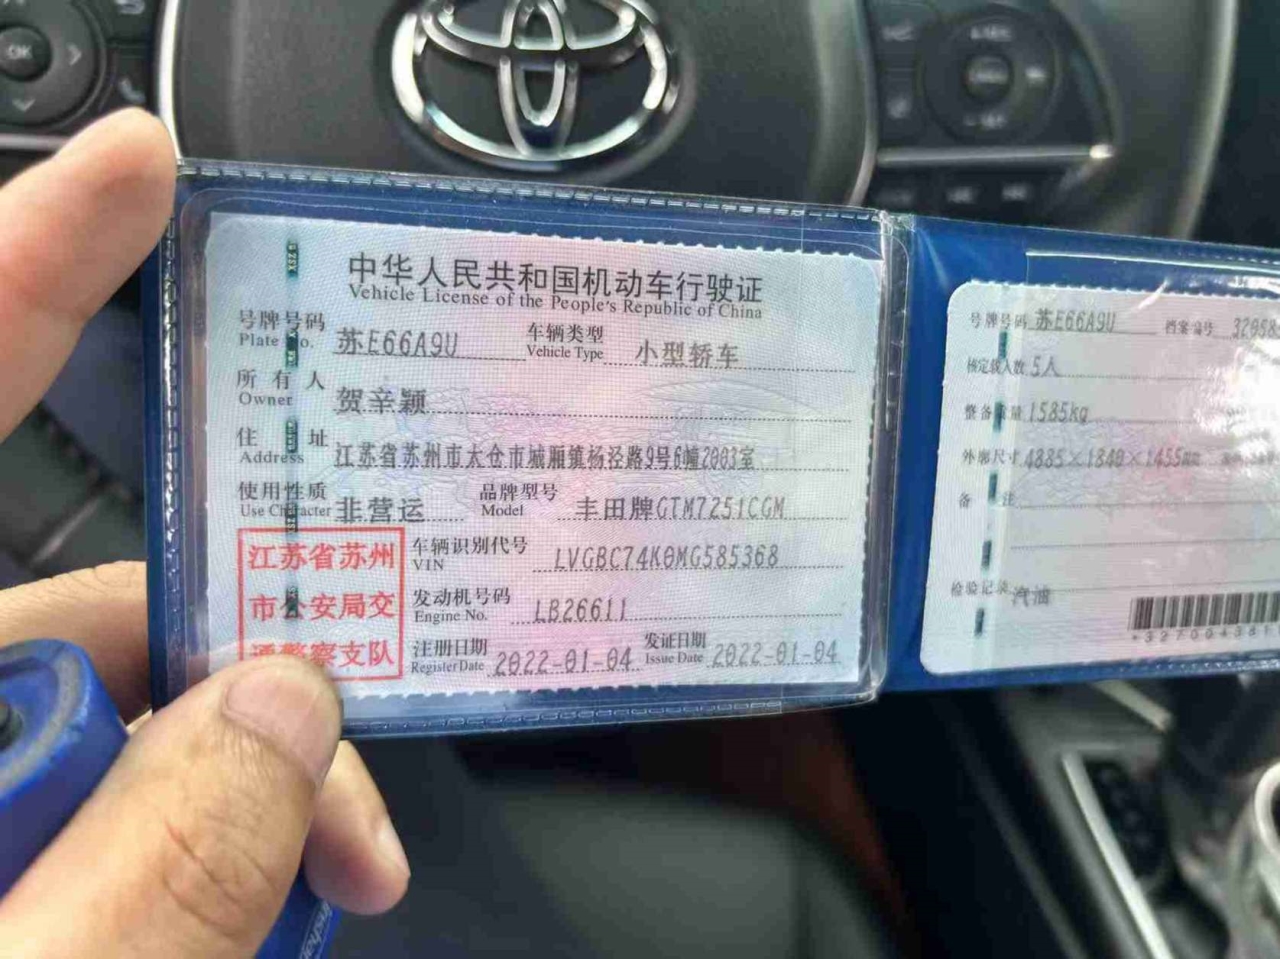 中华人民共和国机动车行驶证
Vehicle License of the People's Republic of China
号牌号码 苏E66A9U 车辆类型 小型轿车
Plate No. Vehicle Type
所有人 贺辛颖
Owner
住址 江苏省苏州市太仓市城厢镇杨泾路9号6幢2003室
Address
使用性质 非营运 品牌型号 丰田牌GTM7251CGM
Use Character Model
江苏省苏州
市公安局交
通警察支队
车辆识别代号 LVGBC74K0MG585368
VIN
发动机号码 LB26611
Engine No.
注册日期 2022-01-04 发证日期 2022-01-04
Register Date Issue Date
号牌号码 苏E66A9U 档案编号
核定载人数 5人
整备质量 1585kg
外廓尺寸 4885×1840×1455mm
备注
检验记录 汽油
OK